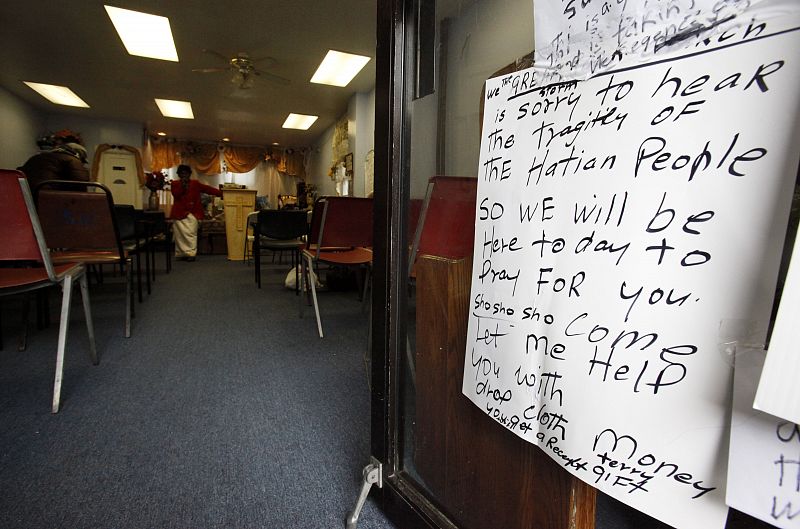 This is a
is taking
and
emergencies on
We The GREAT
storm
is sorry to hear
The tragitly of
THE Hatian People
SO WE will be
Here to day to
Pray FOR you.
sho sho sho come
Let me Help
you with
drop cloth money
terry
you will get a Receipt gift